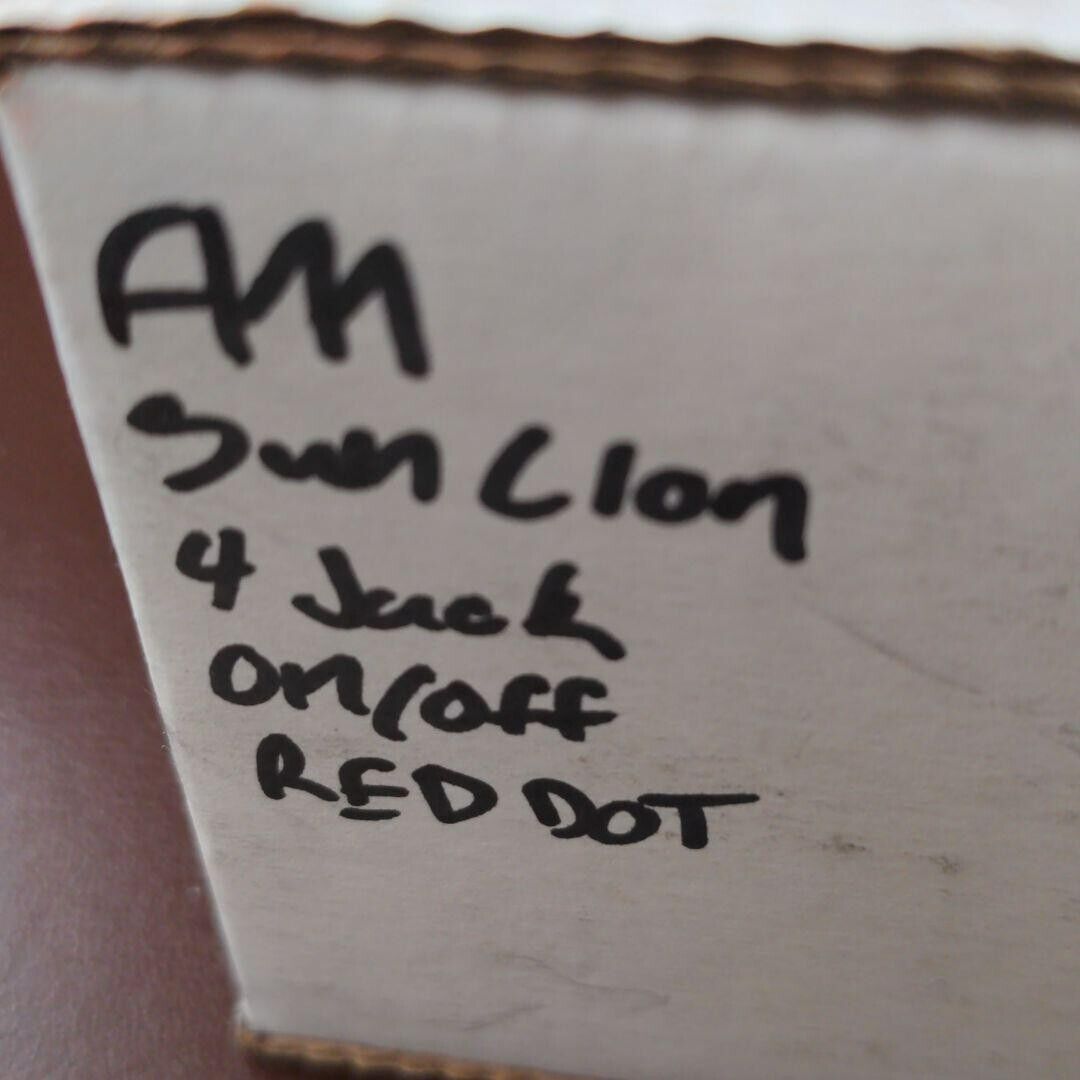 AM
Sun Clon
4 Jack
on/off
RED DOT